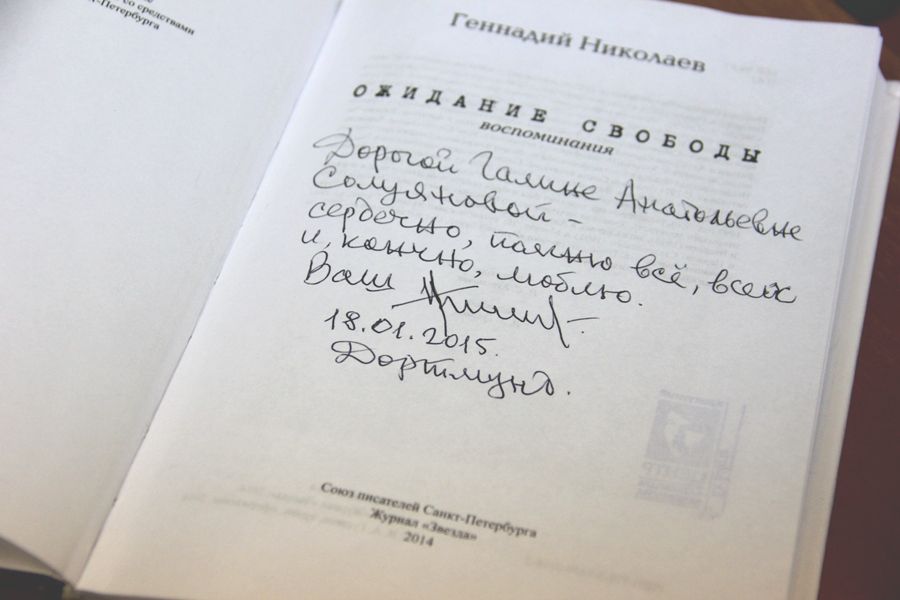 со средствами
-Петербурга
Геннадий Николаев
ОЖИДАНИЕ СВОБОДЫ
воспоминания
Дорогой Галине Анатольевне
Солуяновой -
сердечно, помню всё, всех
и, кончно, люблю.
Ваш
18.01.2015.
Дортмунд.
Союз писателей Санкт-Петербурга
Журнал «Звезда»
2014